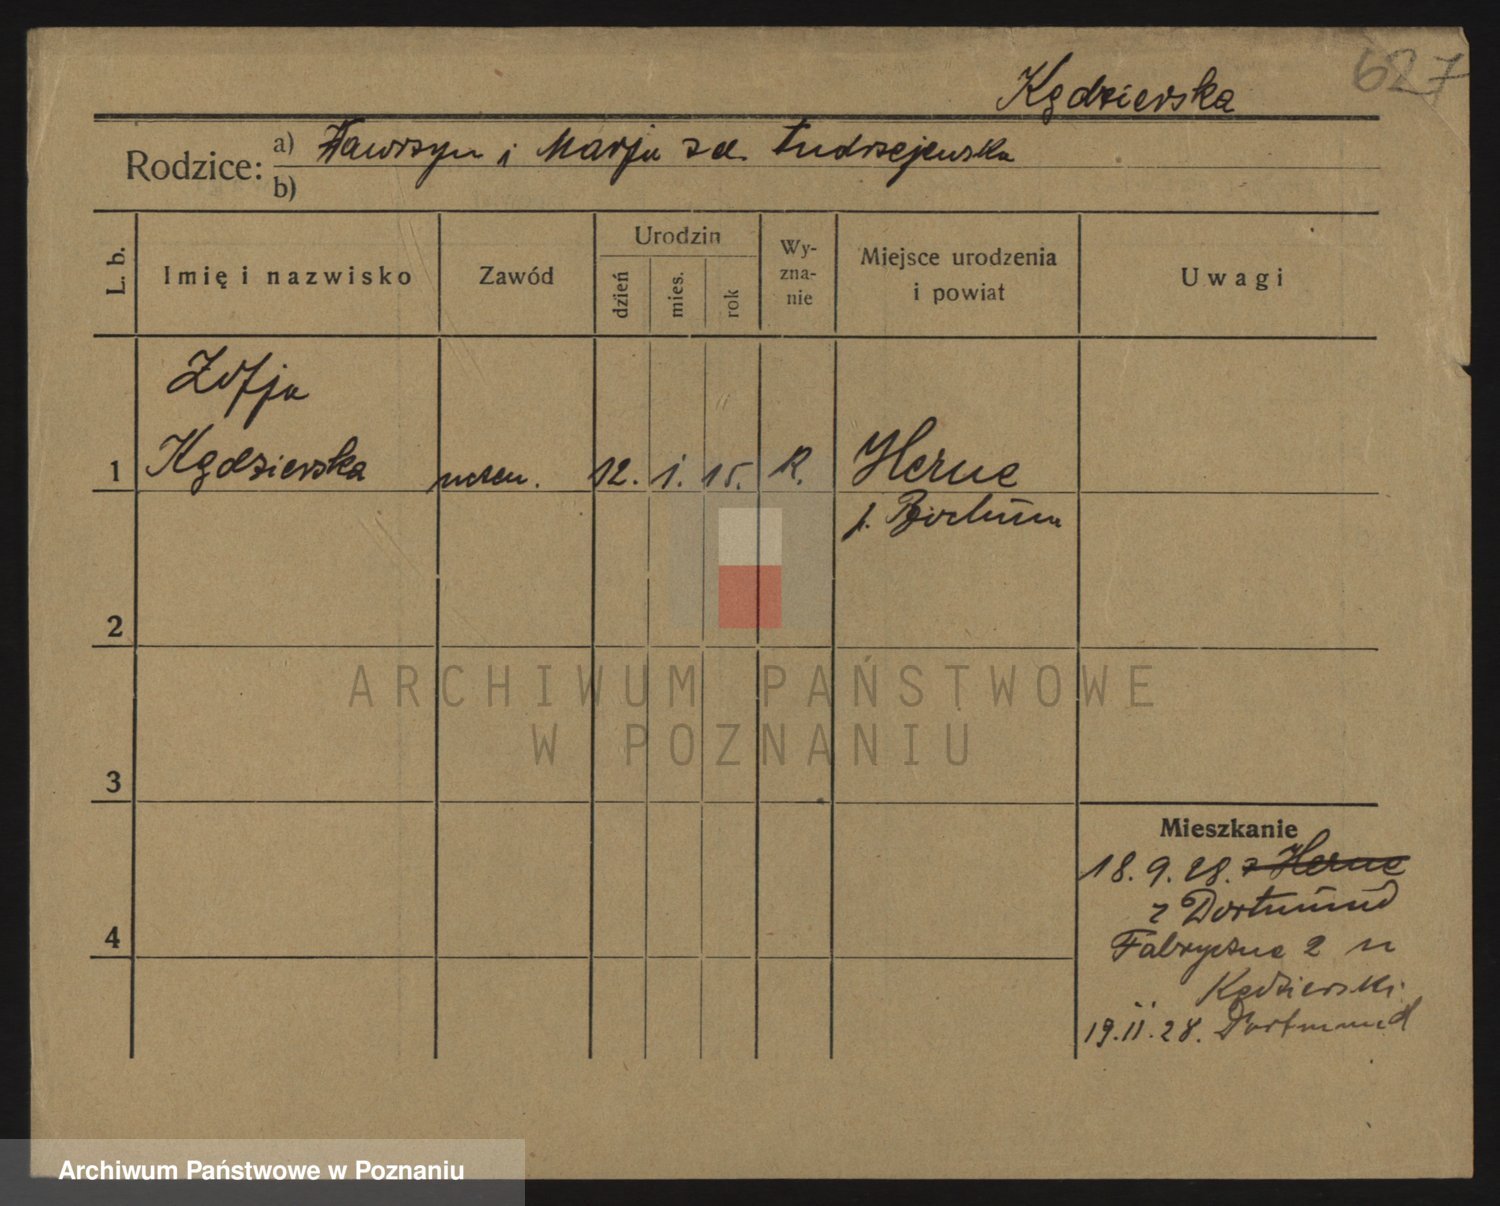 627
Kędzierska
Rodzice: a) Wawrzyn i Marja z d. Andrzejewska
b)
L. b.
Imię i nazwisko
Zawód
Urodzin
dzień
mies.
rok
Wy-
zna-
nie
Miejsce urodzenia
i powiat
Uwagi
Zofja
1 Kędzierska uczen. 12. 1. 15. R. Herne
p. Bochum
2
3
4
Mieszkanie
18.9.28. z Herne
z Dortmund
Fabryczna 2 u
Kędzierski
19.11.28. Dortmund
ARCHIWUM PAŃSTWOWE
W POZNANIU
Archiwum Państwowe w Poznaniu